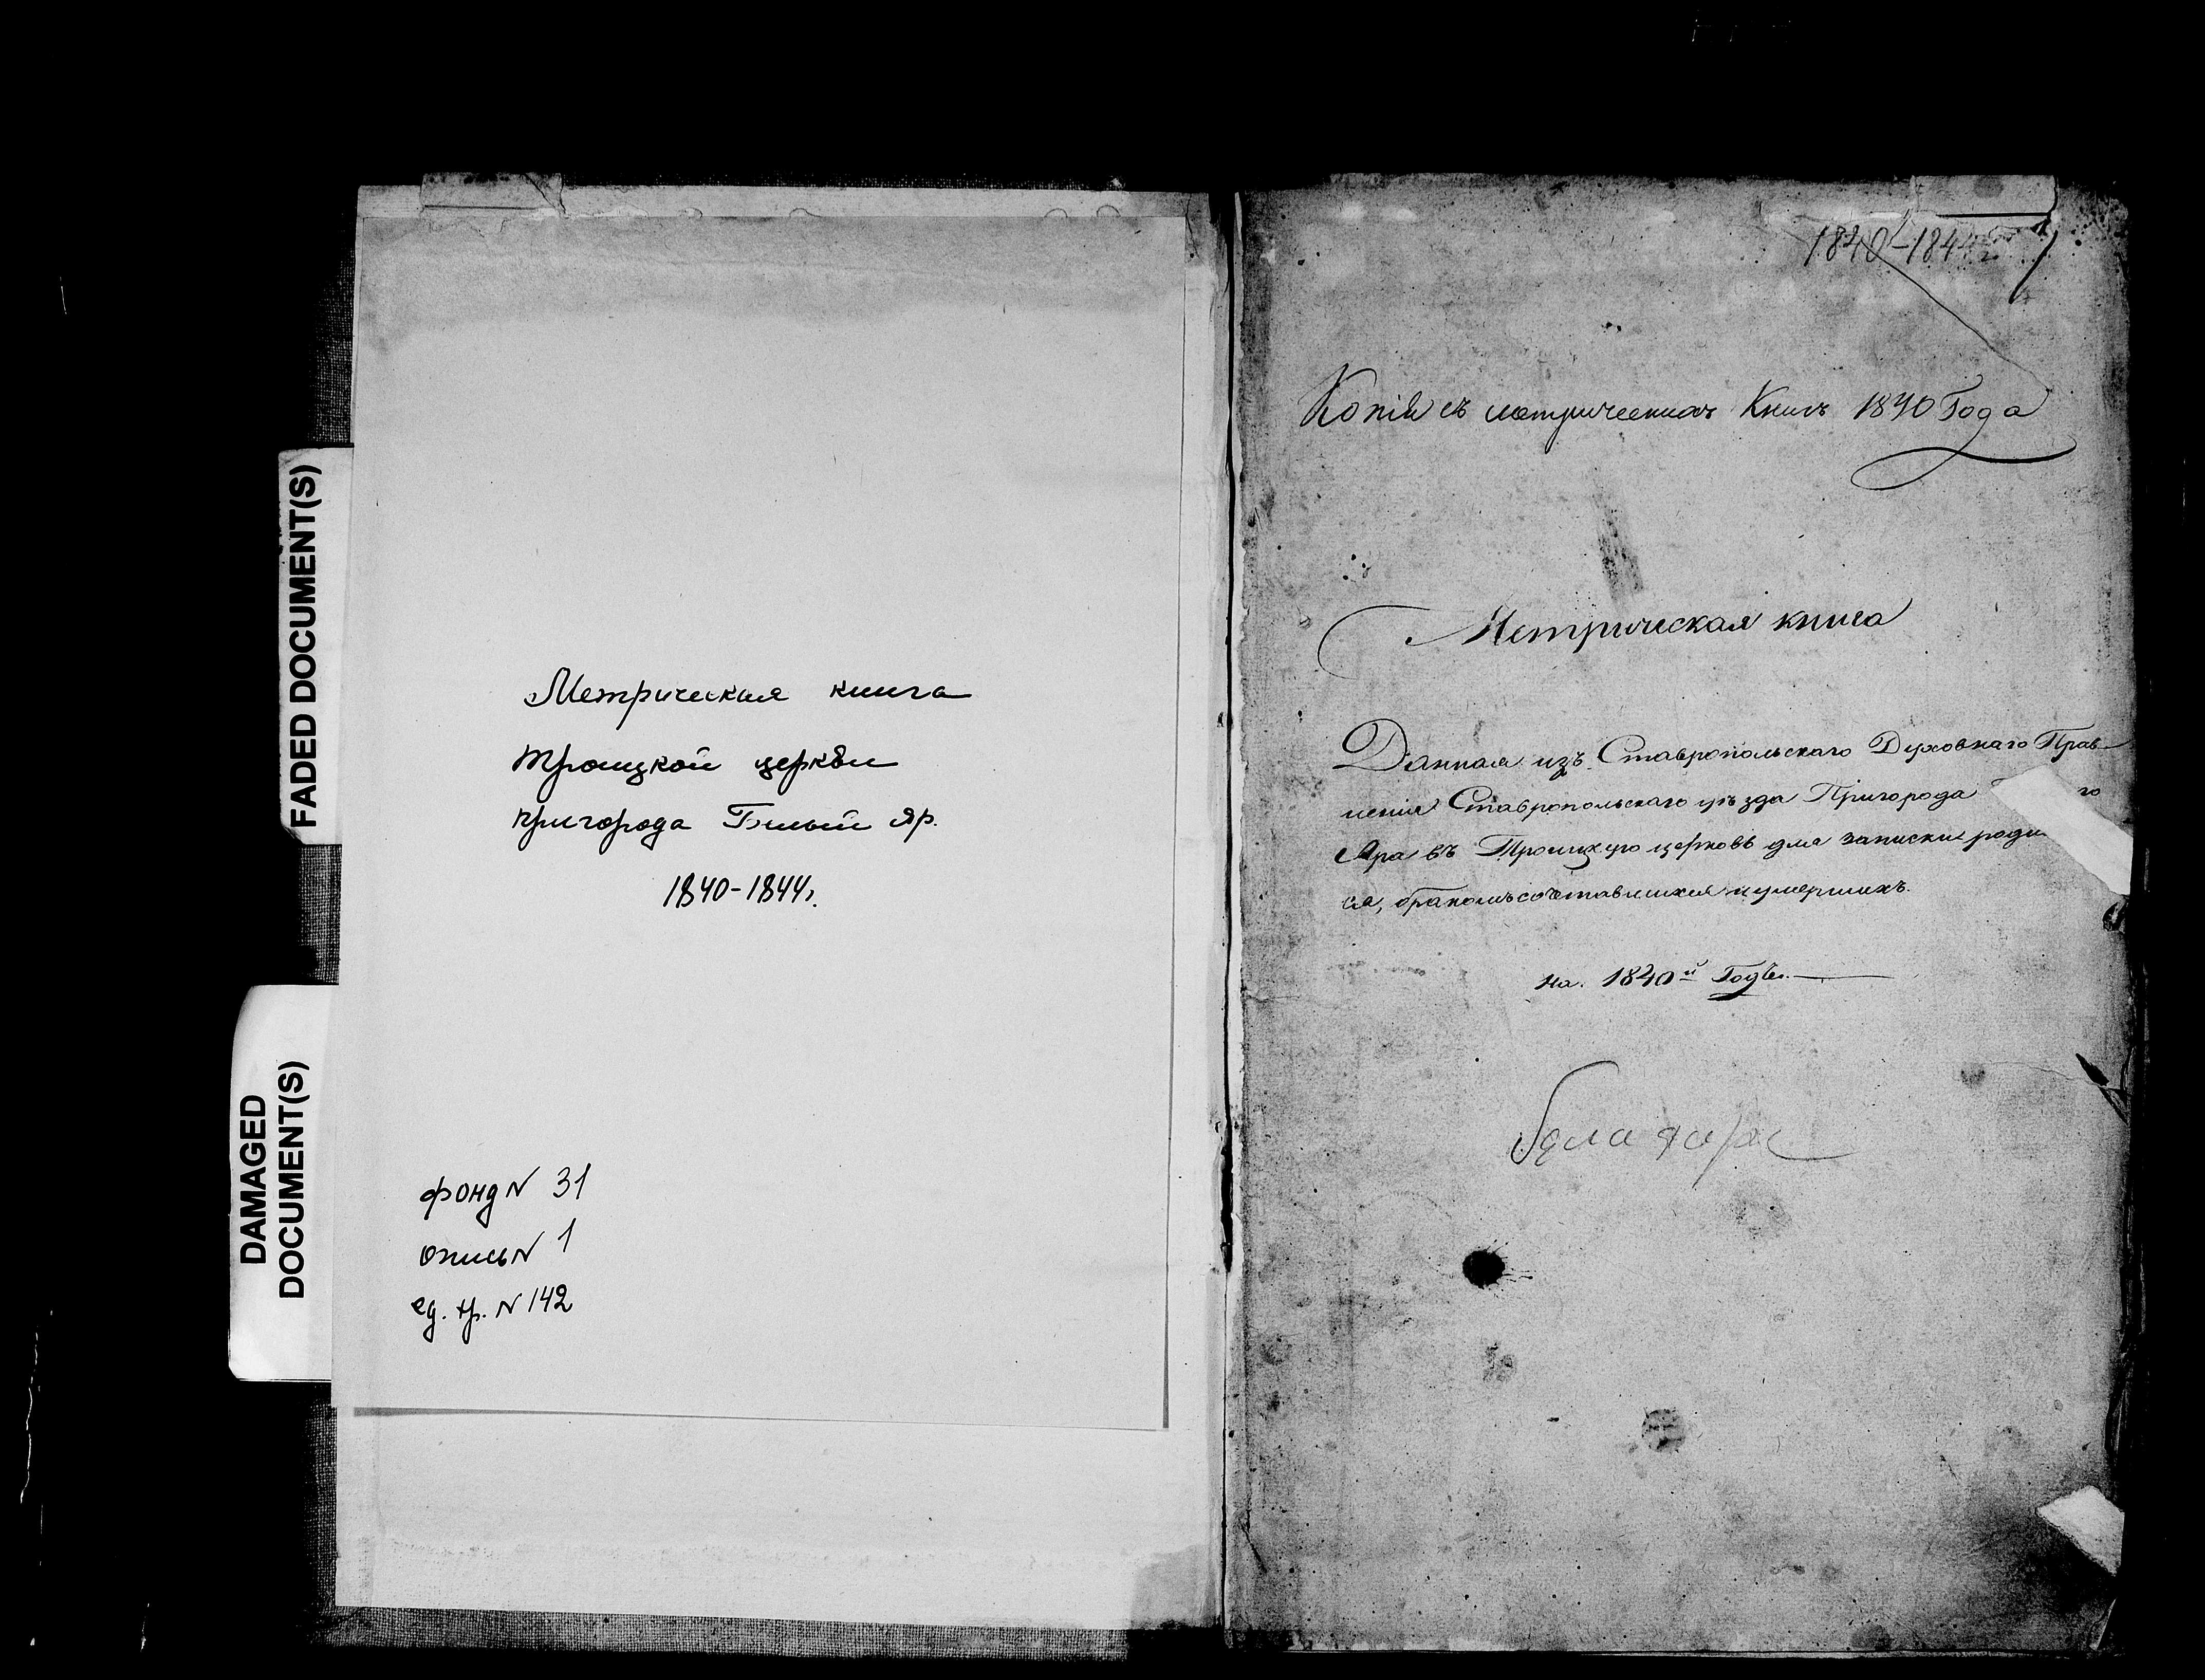 FADED DOCUMENT(S)
DAMAGED
DOCUMENT(S)
Метрическая книга
Троицкой церкви
пригорода Белый яр.
1840-1844г.
фонд N 31
опись N 1
ед. хр. N 142
1840-1844 1
Копія съ метрическихъ Книгъ 1840 Года
Метрическая книга
Данная изъ Ставропольскаго Духовнаго Прав
ленія Ставропольскаго уѣзда Пригорода го
Яра въ Троицкую церковь для записки роди
ся, бракомъ сочетавшихся и умершихъ.
на. 1840й Годъ.